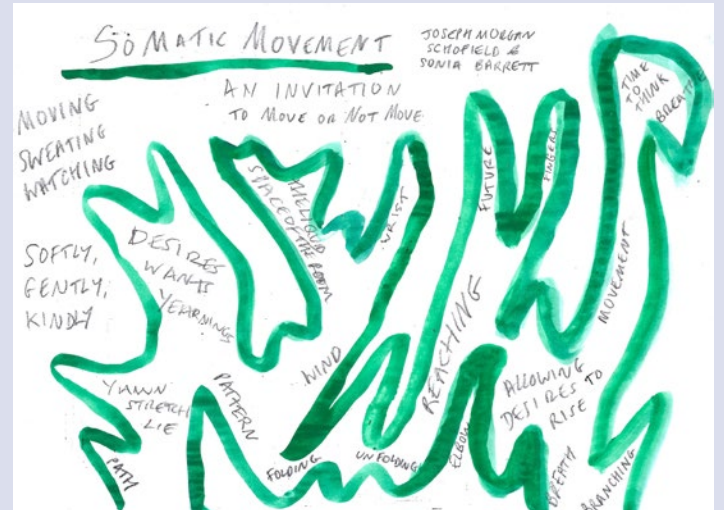 SOMATIC MOVEMENT
JOSEPH MORGAN
SCHOFIELD &
SONIA BARRETT
AN INVITATION
TO MOVE OR NOT MOVE
MOVING
SWEATING
WATCHING
TIME
TO
THINK
BREATHE
SOFTLY,
GENTLY,
KINDLY
DESIRES
WANTS
YEARNINGS
THE LIQUID
SPACE OF THE ROOM
WRIST
FUTURE
FINGERS
MOVEMENT
REACHING
WIND
YAWN
STRETCH
LIE
PATTERN
PATH
FOLDING
UNFOLDING
ELBOW
ALLOWING
DESIRES TO
RISE
BREATH
BRANCHING